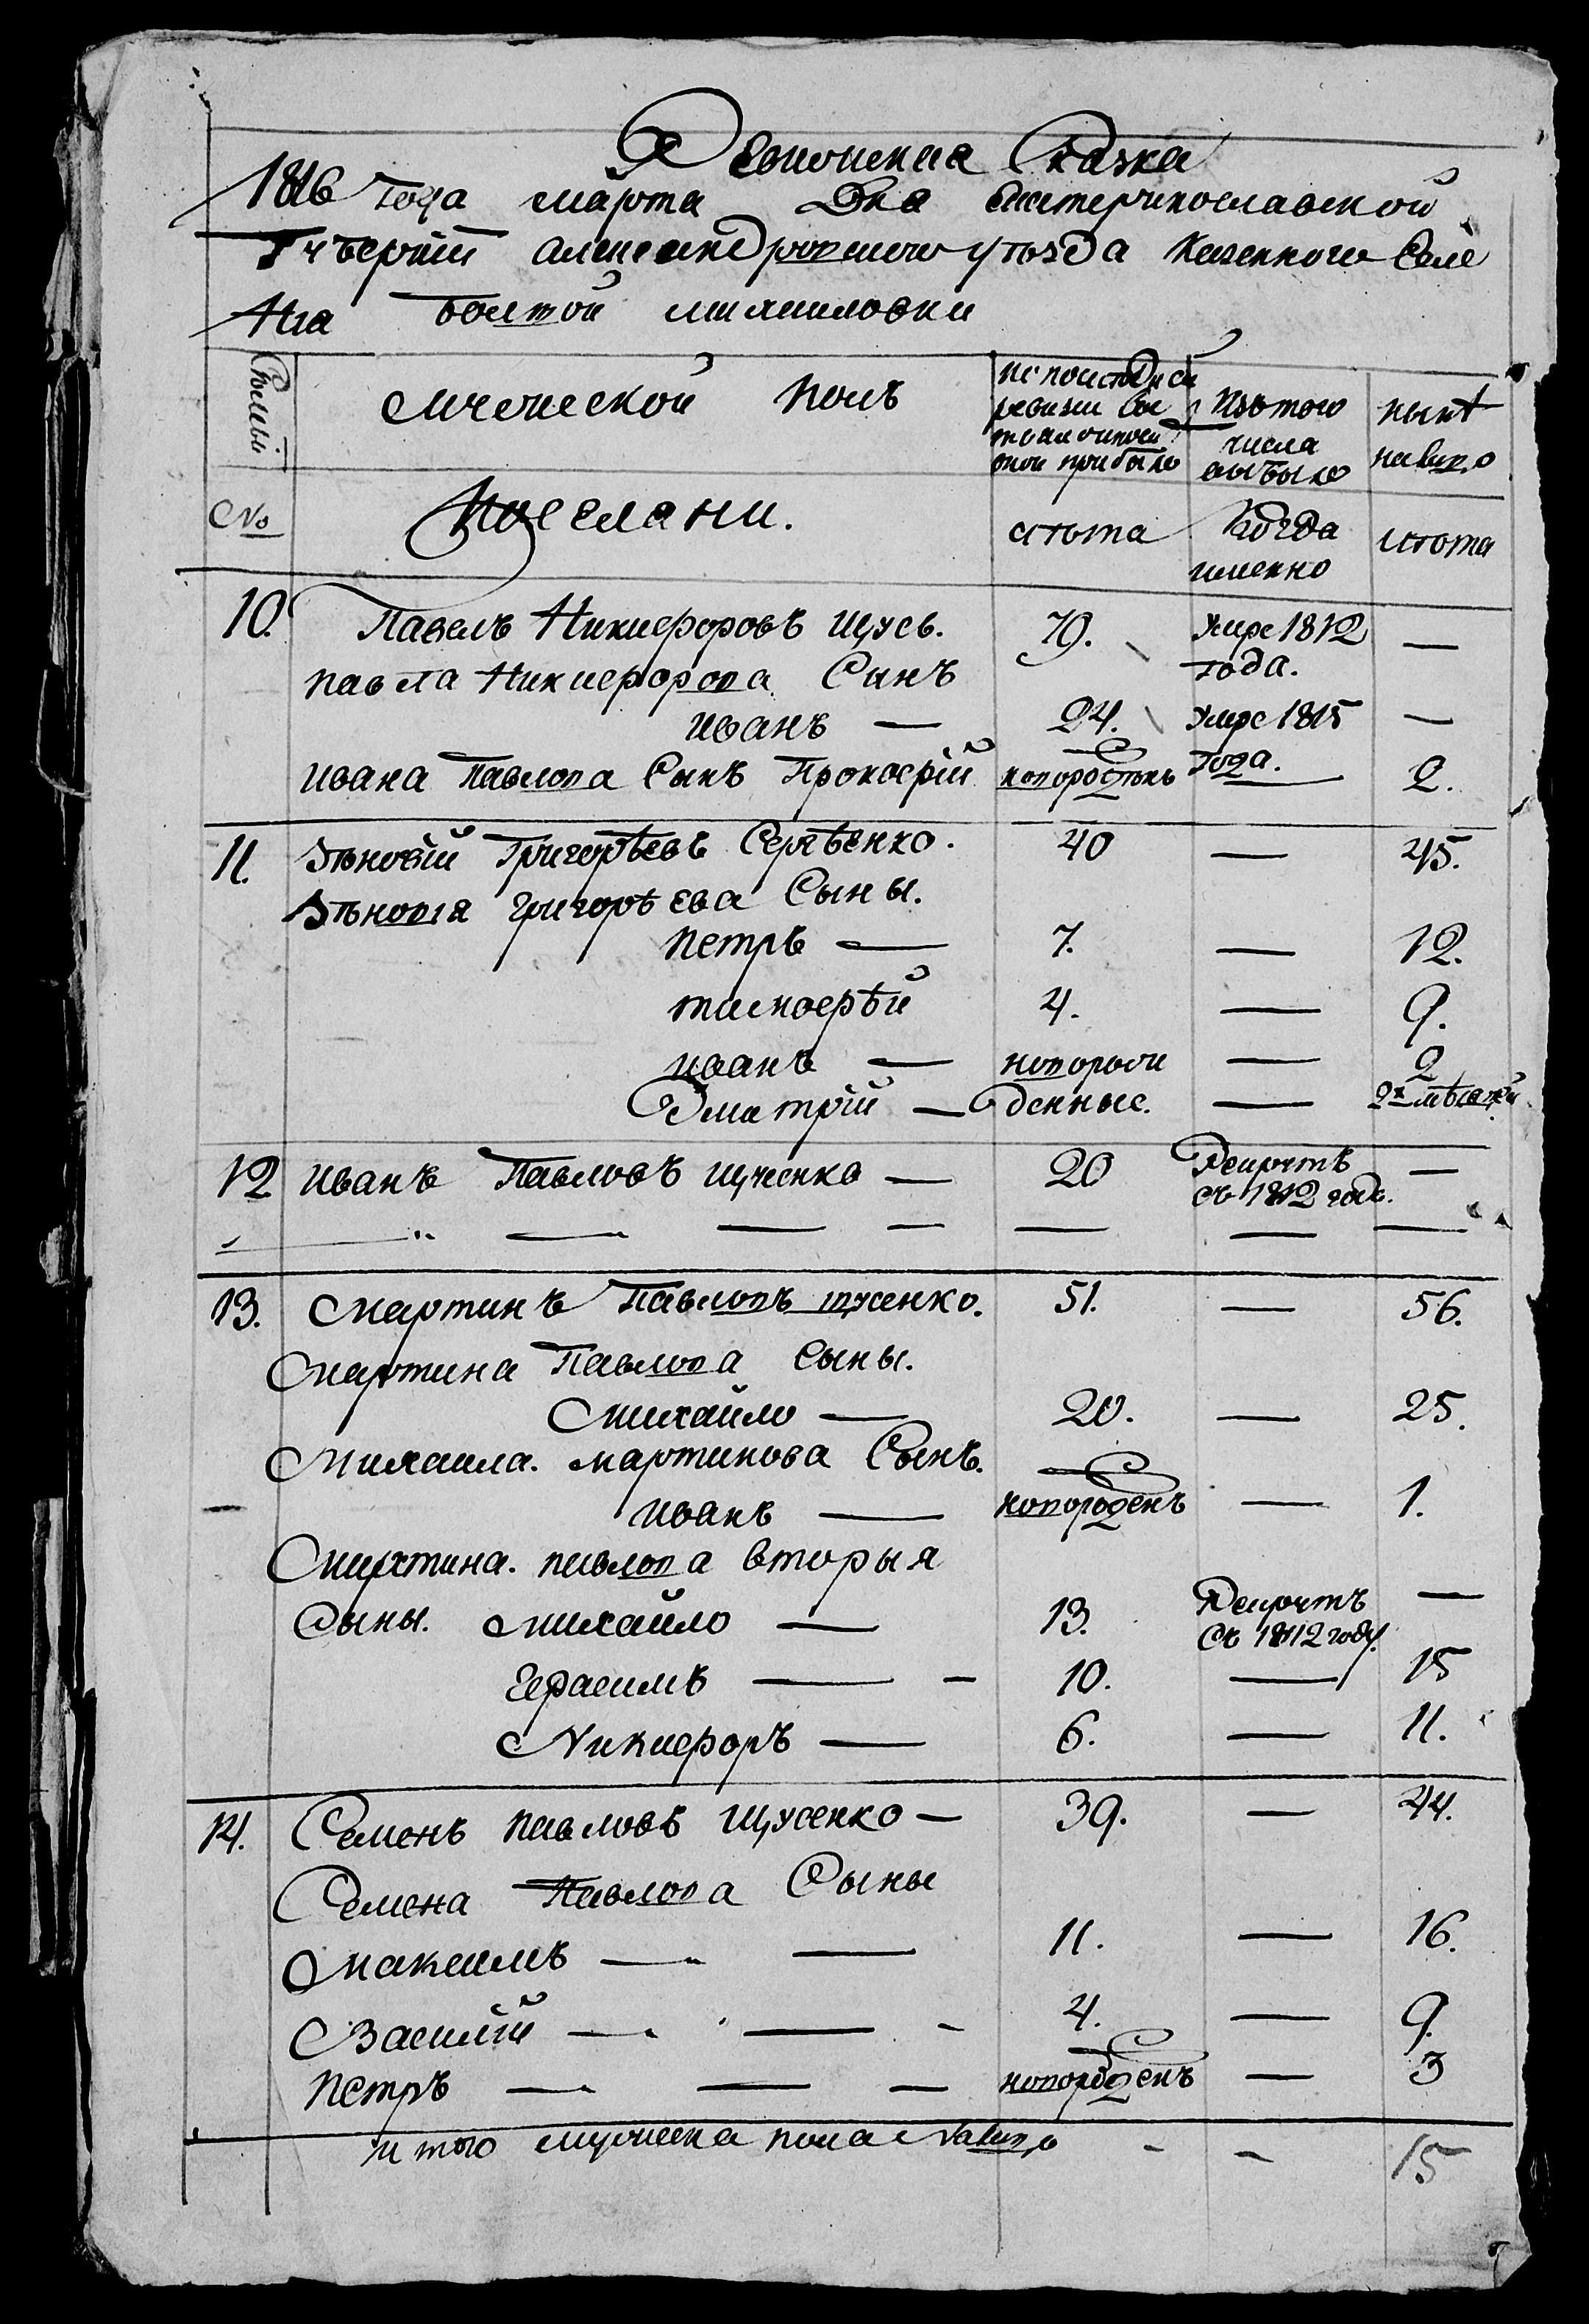 Ревижская Сказка
1816 года марта Дня Екатеринославской
Губерніи александровского уѣзда казенного Селе
Нia болтой михаиловки
Семьи мужеской полъ по последней ревизіи Сос Изъ того нынѣ
тояло и после числа налицо
тои прибыло выбыло
No Поселяни. лѣта Когда лѣта
именно
10. Павелъ Никифоровъ Щусь. 79. Умре 1812 —
Павла Никифорова Сынъ года.
иванъ — 24. Умре 1815 —
ивана Павлова Сынъ Прокофій новорожденъ года. — 2.
11. Зѣновій Григорѣевъ Сергѣенко. 40 — 45.
Зѣновія григорѣева Сыны.
петръ — 7. — 12.
тимоѳей 4. — 9.
иванъ — новорож — 2
Дмитрій — денные. — 2х мѣсяцей
12 иванъ Павловъ щусенко — 20 Рекрутъ —
съ 1812 года.
13. Мартинъ Павловъ щусенко. 51. — 56.
Мартина Павлова Сыны.
Михайло — 20. — 25.
Михаила. мартинова Сынъ.
иванъ — новорожденъ — 1.
Мартина. павлова вторыя
Сыны. михайло — 13. Рекрутъ —
Съ 1812 году.
герасимъ — — 10. — 15
Никифоръ — 6. — 11.
14. Семенъ павловъ Щусенко — 39. — 44.
Семена Павлова Сыны
Максимъ — — 11. — 16.
Василій — — - 4. — 9.
петръ — — — новорожденъ — 3
итого мужеска пола Налицо - - 15